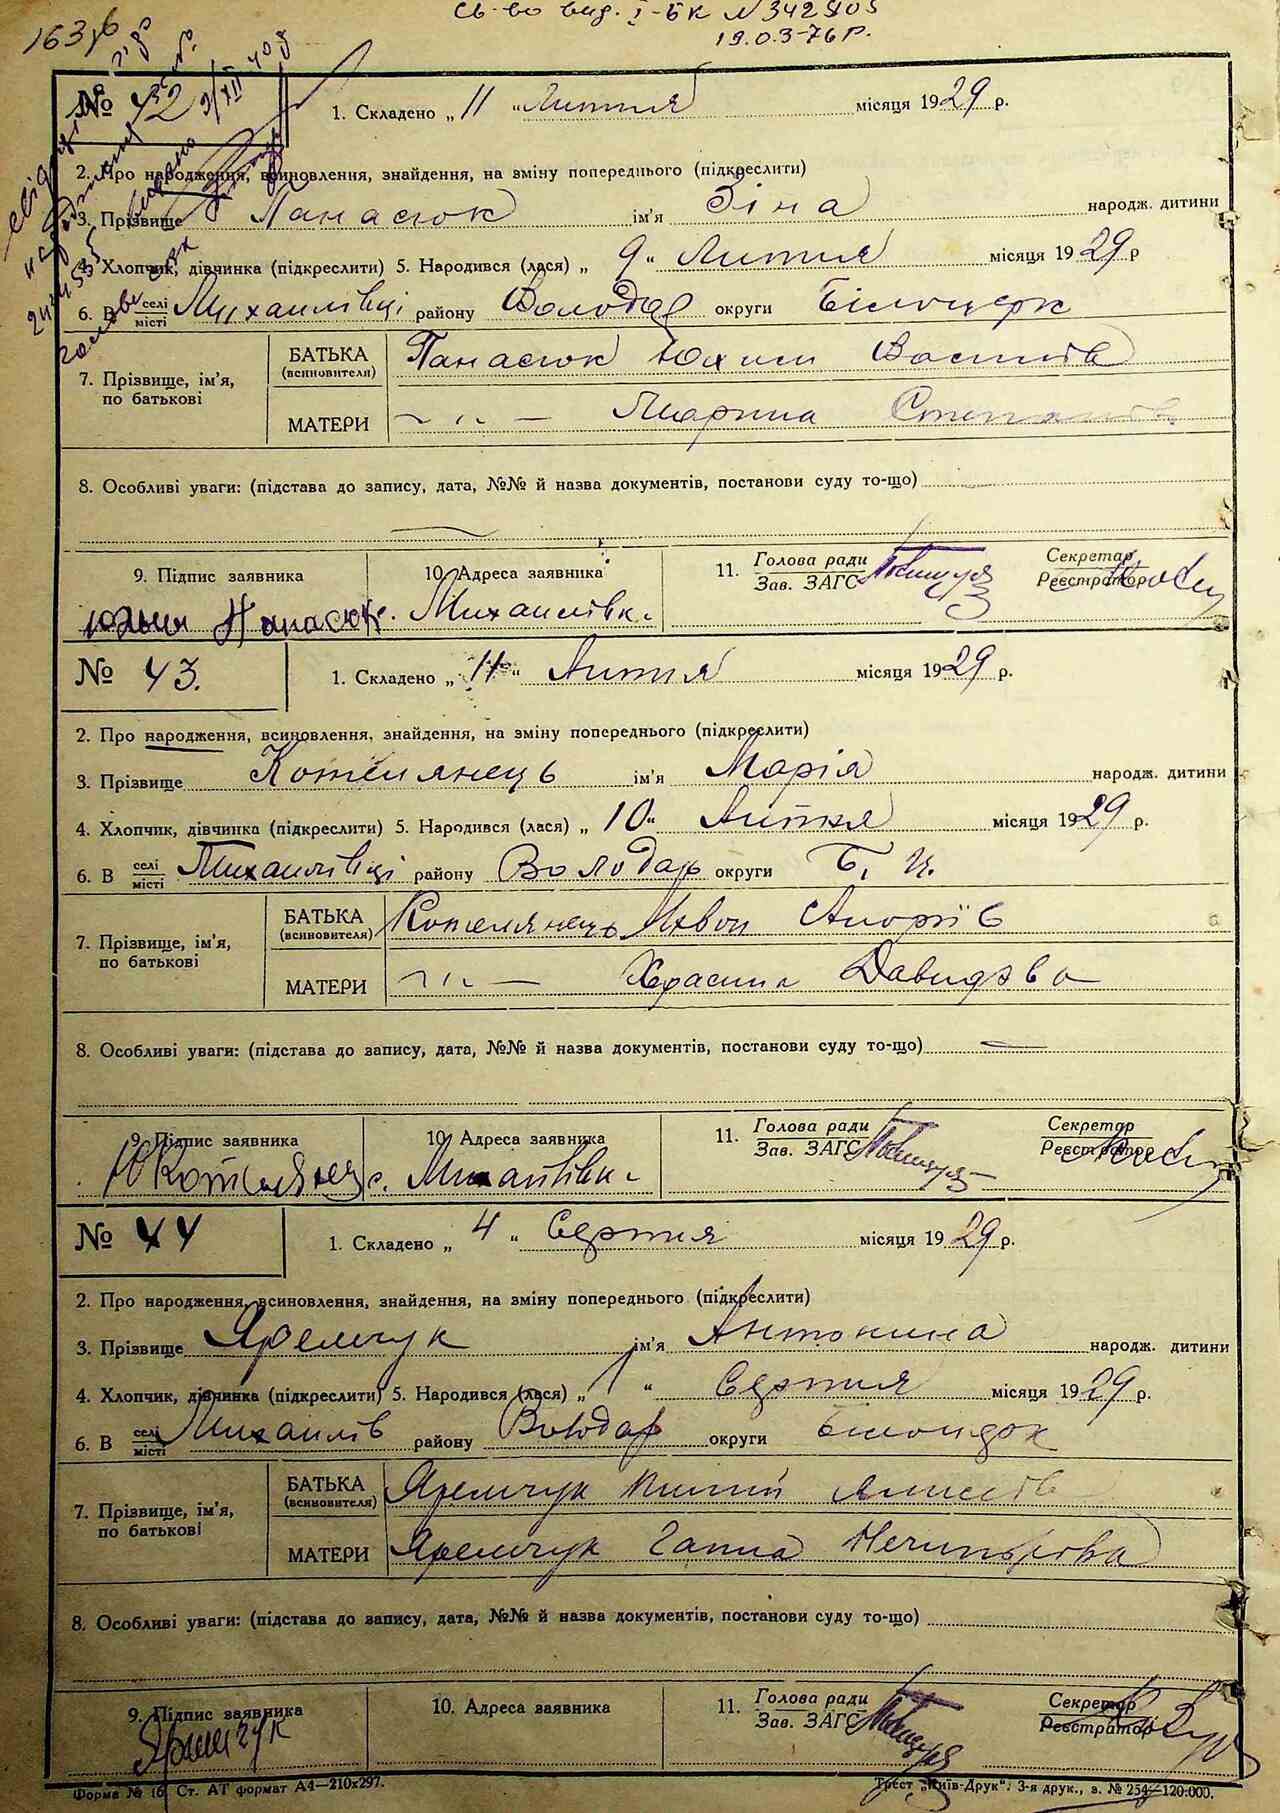 163
Св-во вид. I-БК № 342905
19.03-76 р.
№ 42
1. Складено „ 11 " Лютня місяця 1929 р.
2. Про народження, всиновлення, знайдення, на зміну попереднього (підкреслити)
3. Прізвище Панасюк ім'я Зіна народж. дитини
4. Хлопчик, дівчинка (підкреслити) 5. Народився (лася) „ 9 " Лютня місяця 1929 р
6. В селі/місті Михайлівці району Володар округи Білоцерк
7. Прізвище, ім'я, по батькові
БАТЬКА (всиновителя) Панасюк Юхим Василів
МАТЕРИ ~ " — Марина
8. Особливі уваги: (підстава до запису, дата, №№ й назва документів, постанови суду то-що)
9. Підпис заявника 10. Адреса заявника 11. Голова ради Зав. ЗАГС Секретар Реєстратор
Юхим Панасюк с. Михайлівка
№ 43.
1. Складено „ 11 " Лютня місяця 1929 р.
2. Про народження, всиновлення, знайдення, на зміну попереднього (підкреслити)
3. Прізвище Котелянець ім'я Марія народж. дитини
4. Хлопчик, дівчинка (підкреслити) 5. Народився (лася) „ 10 " Лютня місяця 1929 р.
6. В селі/місті Михайлівці району Володар округи Б. Ц.
7. Прізвище, ім'я, по батькові
БАТЬКА (всиновителя) Котелянець
МАТЕРИ ~ " — Давидова
8. Особливі уваги: (підстава до запису, дата, №№ й назва документів, постанови суду то-що)
9. Підпис заявника 10. Адреса заявника 11. Голова ради Зав. ЗАГС Секретар Реєстратор
Котелянец с. Михайлівка
№ 44
1. Складено „ 4 " Серпня місяця 1929 р.
2. Про народження, всиновлення, знайдення, на зміну попереднього (підкреслити)
3. Прізвище Яремчук ім'я Антонина народж. дитини
4. Хлопчик, дівчинка (підкреслити) 5. Народився (лася) „ 1 " Серпня місяця 1929 р.
6. В селі/місті Михайлів району Володар округи
7. Прізвище, ім'я, по батькові
БАТЬКА (всиновителя) Яремчук
МАТЕРИ Яремчук Ганна Нечипорівна
8. Особливі уваги: (підстава до запису, дата, №№ й назва документів, постанови суду то-що)
9. Підпис заявника 10. Адреса заявника 11. Голова ради Зав. ЗАГС Секретар Реєстратор
Яримчук
Форма № 16. Ст. АТ формат А4—210x297.
Трест „Київ-Друк". 3-я друк., з. № 254—120.000.